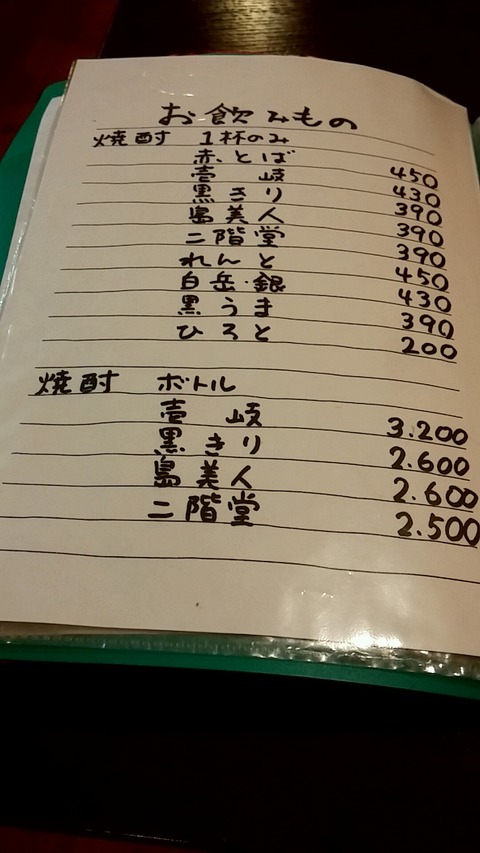 お飲みもの
焼酎 1杯のみ
赤とば 450
壱岐 430
黒きり 390
島美人 390
二階堂 390
れんと 450
白岳・銀 430
黒うま 390
ひろと 200
焼酎 ボトル
壱岐 3.200
黒きり 2.600
島美人 2.600
二階堂 2.500